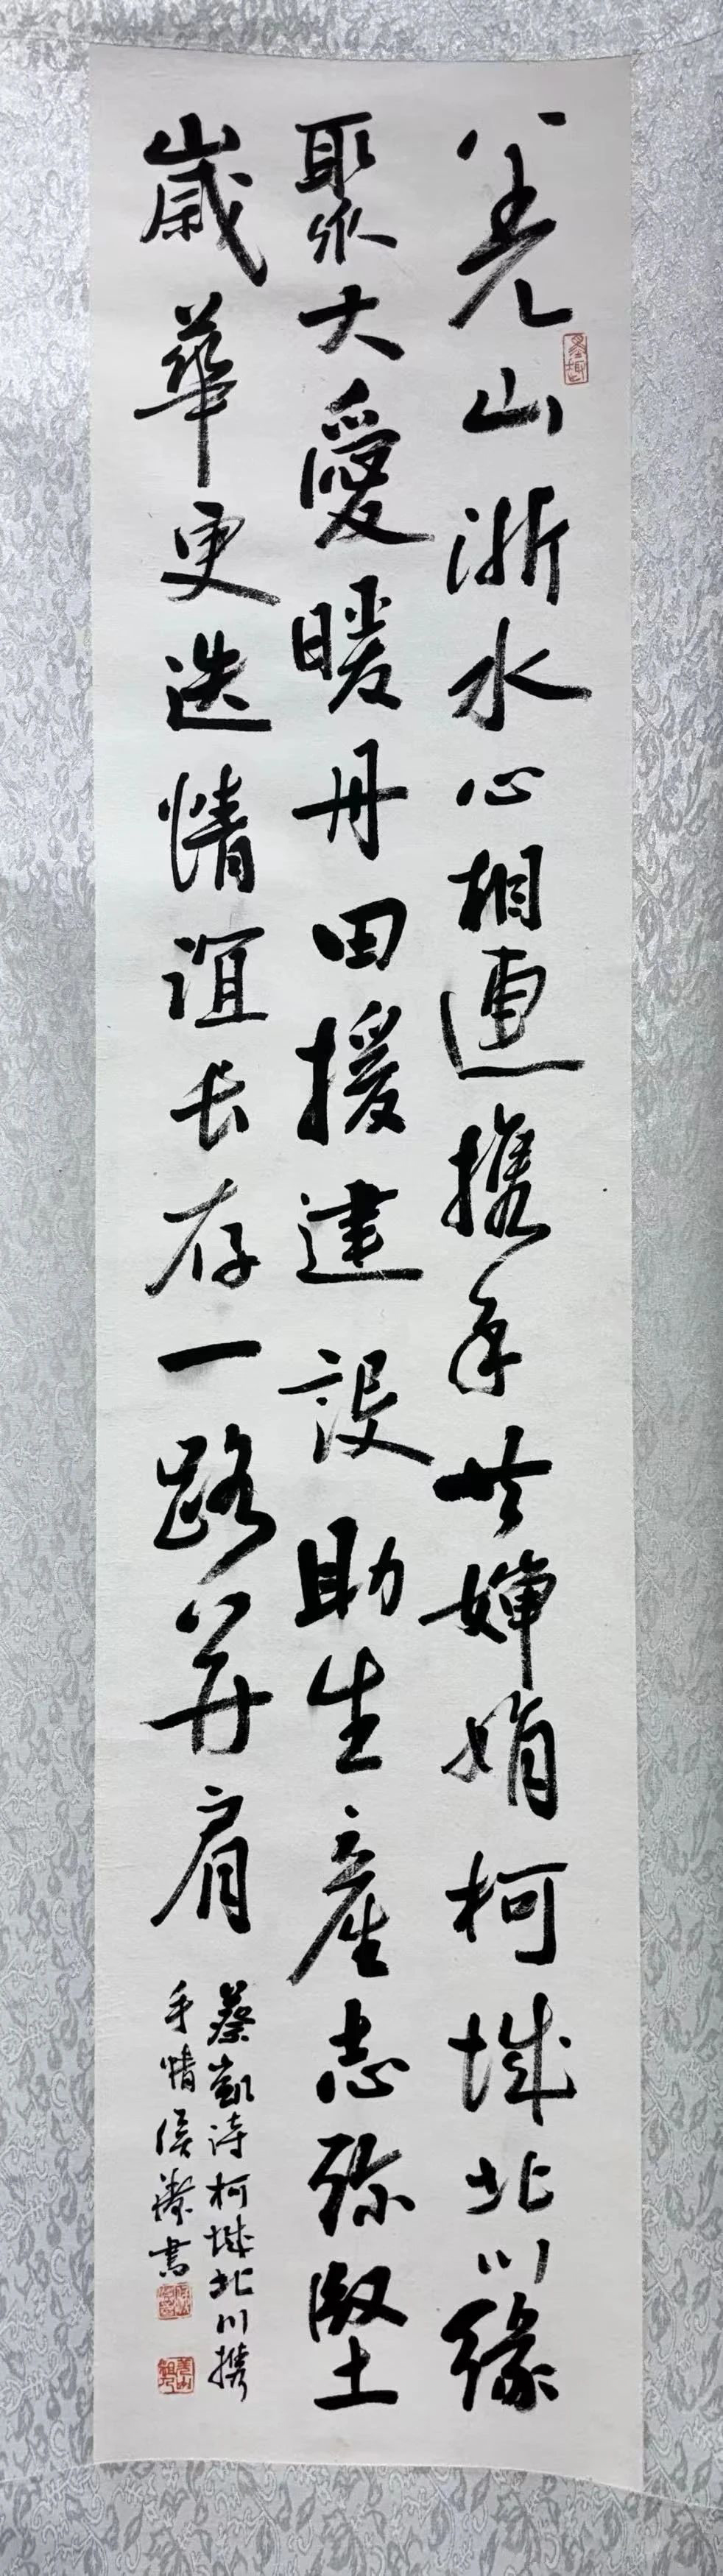 羌山浙水心相連攜手共嬋娟柯城北川緣
聚大愛暖丹田援建設助生產志弥堅
歲華更迭情誼长存一路并肩
蔡凱诗柯城北川攜
手情侯書